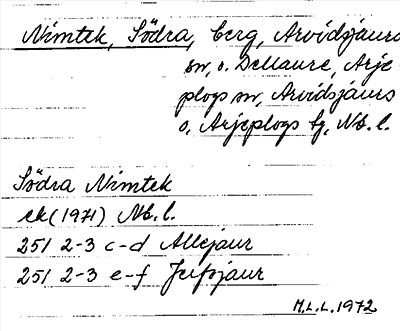 Nimtek, Södra, berg, Arvidsjaurs
sn, o. Dellaure, Arje-
plogs sn, Arvidsjaurs
o, Arjeplogs tg, Nb. l.
Södra Nimtek
ek (1971) Nb. l.
25I 2-3 c-d Allejaur
25I 2-3 e-f Jutsjaur
M.L.L. 1972